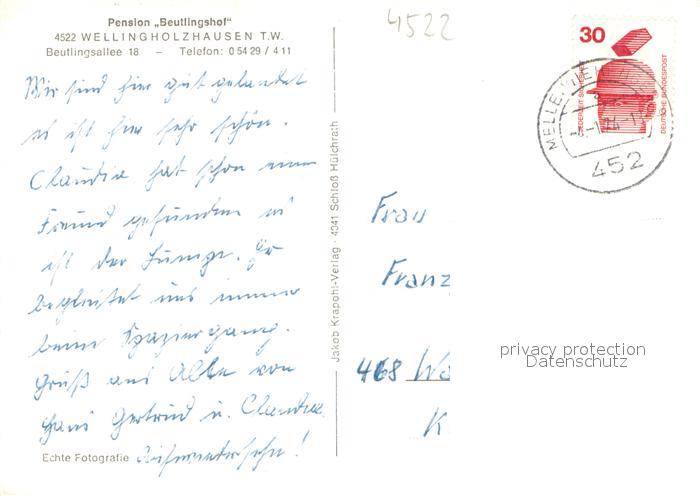 Pension „Beutlingshof"
4522 WELLINGHOLZHAUSEN T.W.
Beutlingsallee 18 – Telefon: 0 54 29 / 4 11
4522
30
JEDERZEIT SICHERHEIT
DEUTSCHE BUNDESPOST
MELLE
452
Wir sind hier gut gelandet
es ist hier sehr schön.
Claudia hat schon einen
Freund gefunden es
ist der Junge. Er
begleitet uns immer
beim Spaziergang.
Gruß an Alle von
Hans Gertrud u. Claudia
Aufwiedersehn!
Echte Fotografie
Jakob Krapohl-Verlag · 4041 Schloß Hülchrath
Frau
Franz
468 Wa
K
privacy protection
Datenschutz